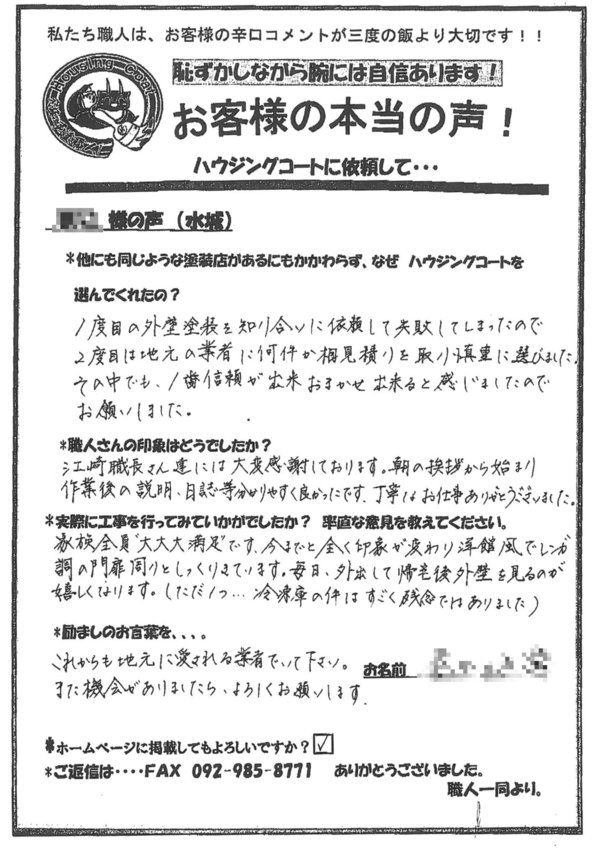 私たち職人は、お客様の辛口コメントが三度の飯より大切です！！
Housing Coat
恥ずかしながら腕には自信あります！
お客様の本当の声！
ハウジングコートに依頼して・・・
様の声（水城）
*他にも同じような塗装店があるにもかかわらず、なぜ ハウジングコートを
選んでくれたの？
1度目の外壁塗装を知り合いに依頼して失敗してしまったので
2度目は地元の業者に何件か相見積りを取り慎重に選びました。
その中でも、1番信頼が出来おまかせ出来ると感じましたので
お願いしました。
*職人さんの印象はどうでしたか？
江崎職長さん達には大変感謝しております。朝の挨拶から始まり
作業後の説明、日誌等分かりやすく良かったです。丁寧なお仕事ありがとうございました。
*実際に工事を行ってみていかがでしたか？ 率直な意見を教えてください。
家族全員"大大大満足"です。今までと全く印象が変わり洋館風でレンガ
調の門扉周りとしっくりきています。毎日、外出して帰宅後外壁を見るのが
嬉しくなります。（ただ1つ…冷凍庫の件はすごく残念ではありました）
*励ましのお言葉を、、、。
これからも地元に愛される業者でいて下さい。
また機会がありましたら、よろしくお願いします。
お名前
*ホームページに掲載してもよろしいですか？☑
*ご返信は・・・・FAX 092-985-8771 ありがとうございました。
職人一同より。